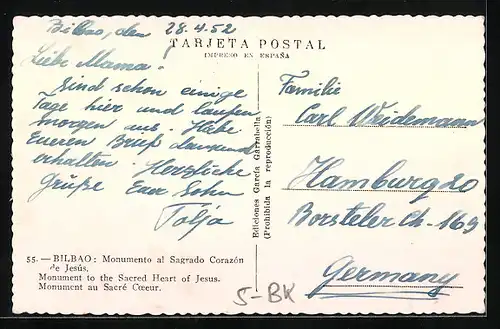 Bilbao, den 28.4.52
TARJETA POSTAL
IMPRESO EN ESPAÑA
Liebe Mama!
Sind schon einige
Tage hier und laufen
morgen aus. Habe
Eueren Brief dankend
erhalten. Herzliche
Grüße Euer Sohn
Tolja
55. — BILBAO: Monumento al Sagrado Corazón
de Jesús.
Monument to the Sacred Heart of Jesus.
Monument au Sacré Cœur.
Ediciones García Garrabella
(Prohibida la reproducción)
Familie
Carl Weidemann
Hamburg 20
Borsteler Ch-169
Germany
5-BK